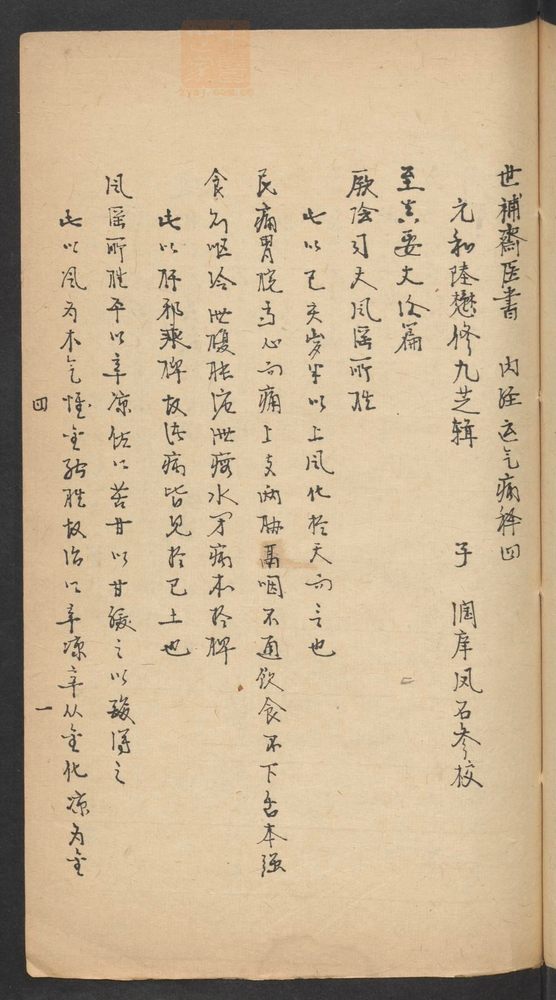 世補齋医書　内经运气病释四
元和陸懋修九芝辑　　子　润庠凤石参校
至真要大论篇
厥阴司天风淫所胜
此以巳亥岁半以上风化於天而言也
民病胃脘当心而痛上支两胁鬲咽不通饮食不下舌本强
食则呕冷泄腹胀溏泄瘕水闭病本於脾
此以肝邪乘脾故诸病皆见於己土也
风淫所胜平以辛凉佐以苦甘以甘缓之以酸泻之
此以风为木气惟金能胜故治以辛凉辛从金化凉为金
四
一